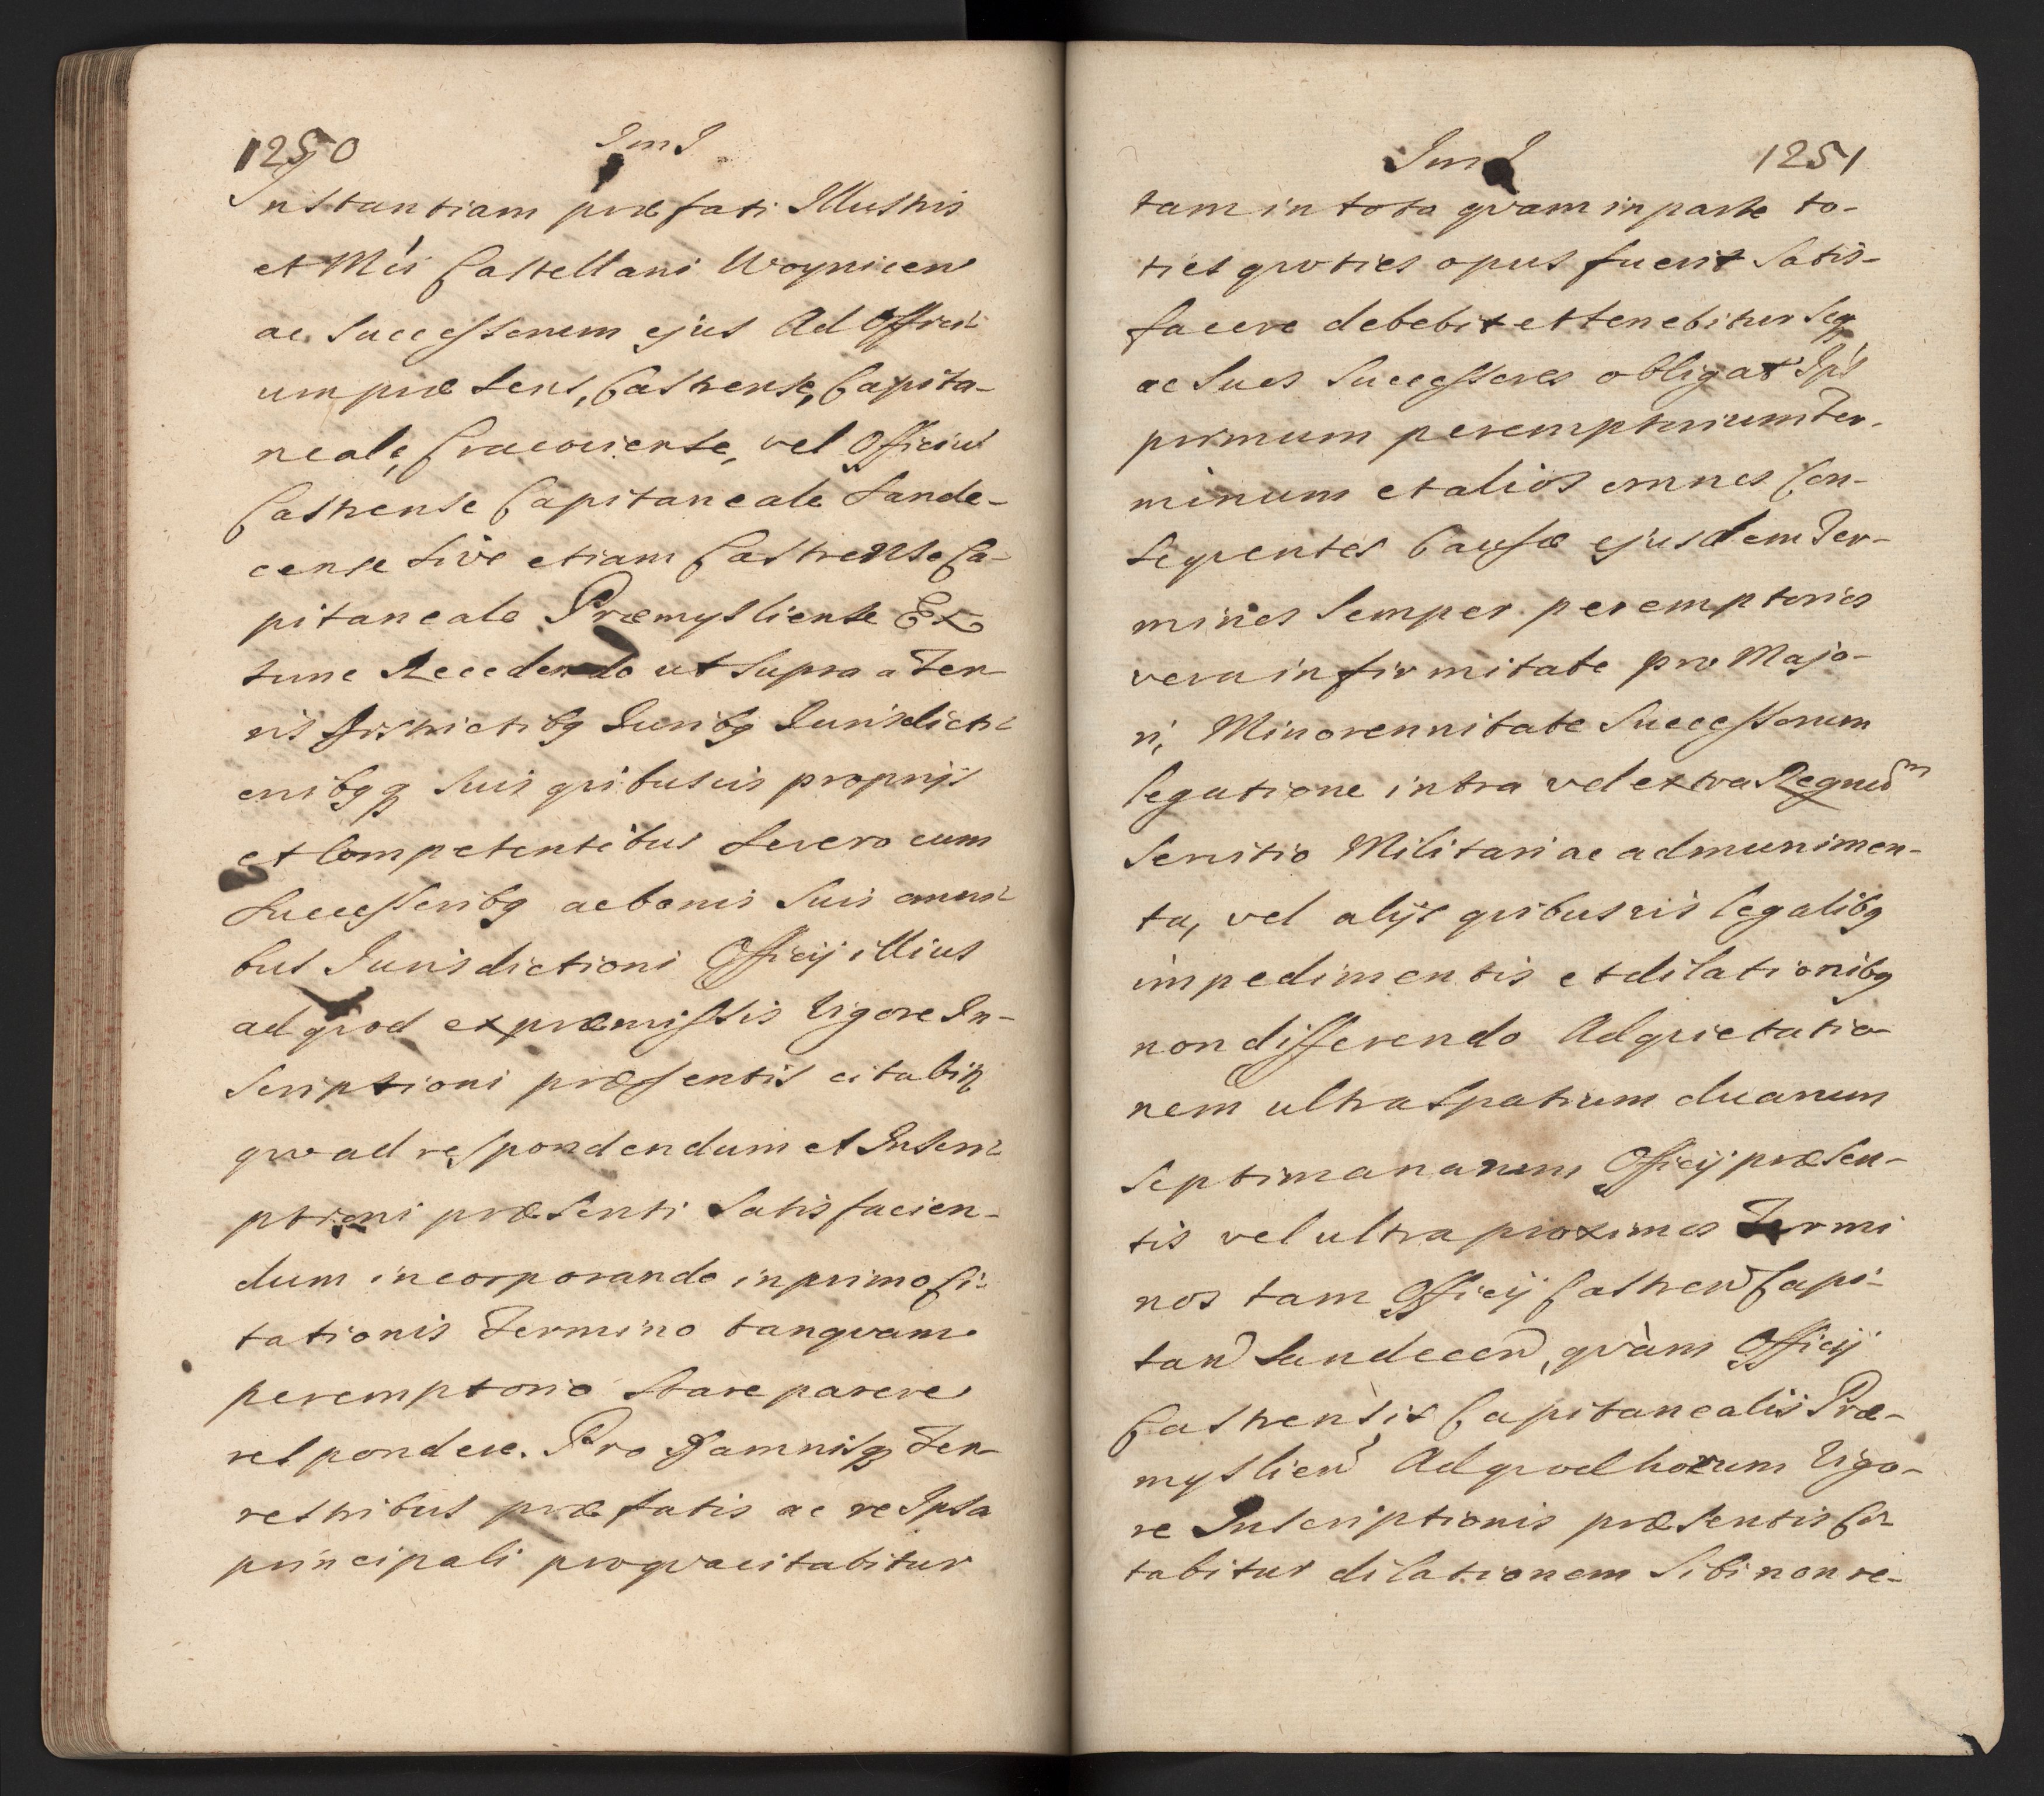 1250
Im I
Instantiam præfati Illustris
et Mci Castellani Woynicen
ac Successorum ejus Ad Offici-
um præsens, Castrense, Capita-
neale, Cracoviense, vel Officiu
Castrense Capitaneale Sande-
cense Sive etiam Castrense Ca-
pitaneale Præmysliense Ex
tunc Recedendo ut Supra a Ter-
ris Districtibq Juribq Jurisdicti-
onibqq Suis qvibusvis proprijs
et Competentibus Se vero cum
Successoribq ac bonis Suis omni-
bus Jurisdictioni Officij illius
ad qvod ex præmissis Vigore In-
scriptioni præsentis citabitr
qvo ad respondendum et Inscri-
ptioni præsenti Satisfacien-
dum incorporando in primo Ci-
tationis Termino tanqvam
peremptorio Stare parere
respondere. Pro Damnisqq Ter-
restribus præfatis ac re Ipsa
principali pro qva citabitur
Im I
1251
tam in tota qvam in parte to-
ties qvoties opus fuerit Satis-
facere debebit et tenebitur Seqq
ac Suos Successores obligat Ips
primum peremptorium Ter-
minum et alios omnes Con-
seqventes Causæ ejusdem Ter-
minos Semper peremptorios
vera infirmitate pro Majo-
ri, Minorennitate Successorum
legatione intra vel extra Regnum
Servitio Militari ac ad munimen-
ta, vel alijs qvibusvis legalibq
impedimentis et dilationibq
non differendo Ad qvietatio-
nem ultra Spatium duarum
Septimanarum Officij præsen-
tis vel ultra proximos Termi
nos tam Officij Castren Capi-
tan Sandecen, qvàm Officij
Castrensis Capitanealis Præ-
myslien Ad qvod horum Vigo-
re Inscriptionis præsentis Ci-
tabitur dilationem Sibi non re-